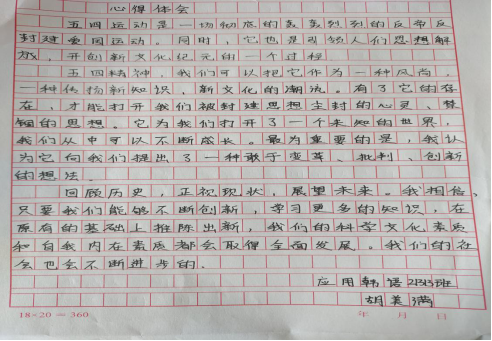 心得体会
五四运动是一场彻底的轰轰烈烈的反帝反
封建爱国运动。同时，它也是引领人们思想解
放，开创新文化纪元的一个过程。
五四精神，我们可以把它作为一种风尚，
一种传扬新知识，新文化的潮流。有了它的存
在，才能打开我们被封建思想尘封的心灵、禁
锢的思想。它为我们打开了一个未知的世界，
我们从中可以不断成长。最为重要的是，我认
为它向我们提出了一种敢于变革、批判、创新
的想法。
回顾历史，正视现状，展望未来。我相信，
只要我们能够不断创新，学习更多的知识，在
原有的基础上推陈出新，我们的科学文化素质
和自我内在素质都会取得全面发展。我们的社
会也会不断进步的。
应用韩语2133班
胡美满
18×20=360 年 月 日